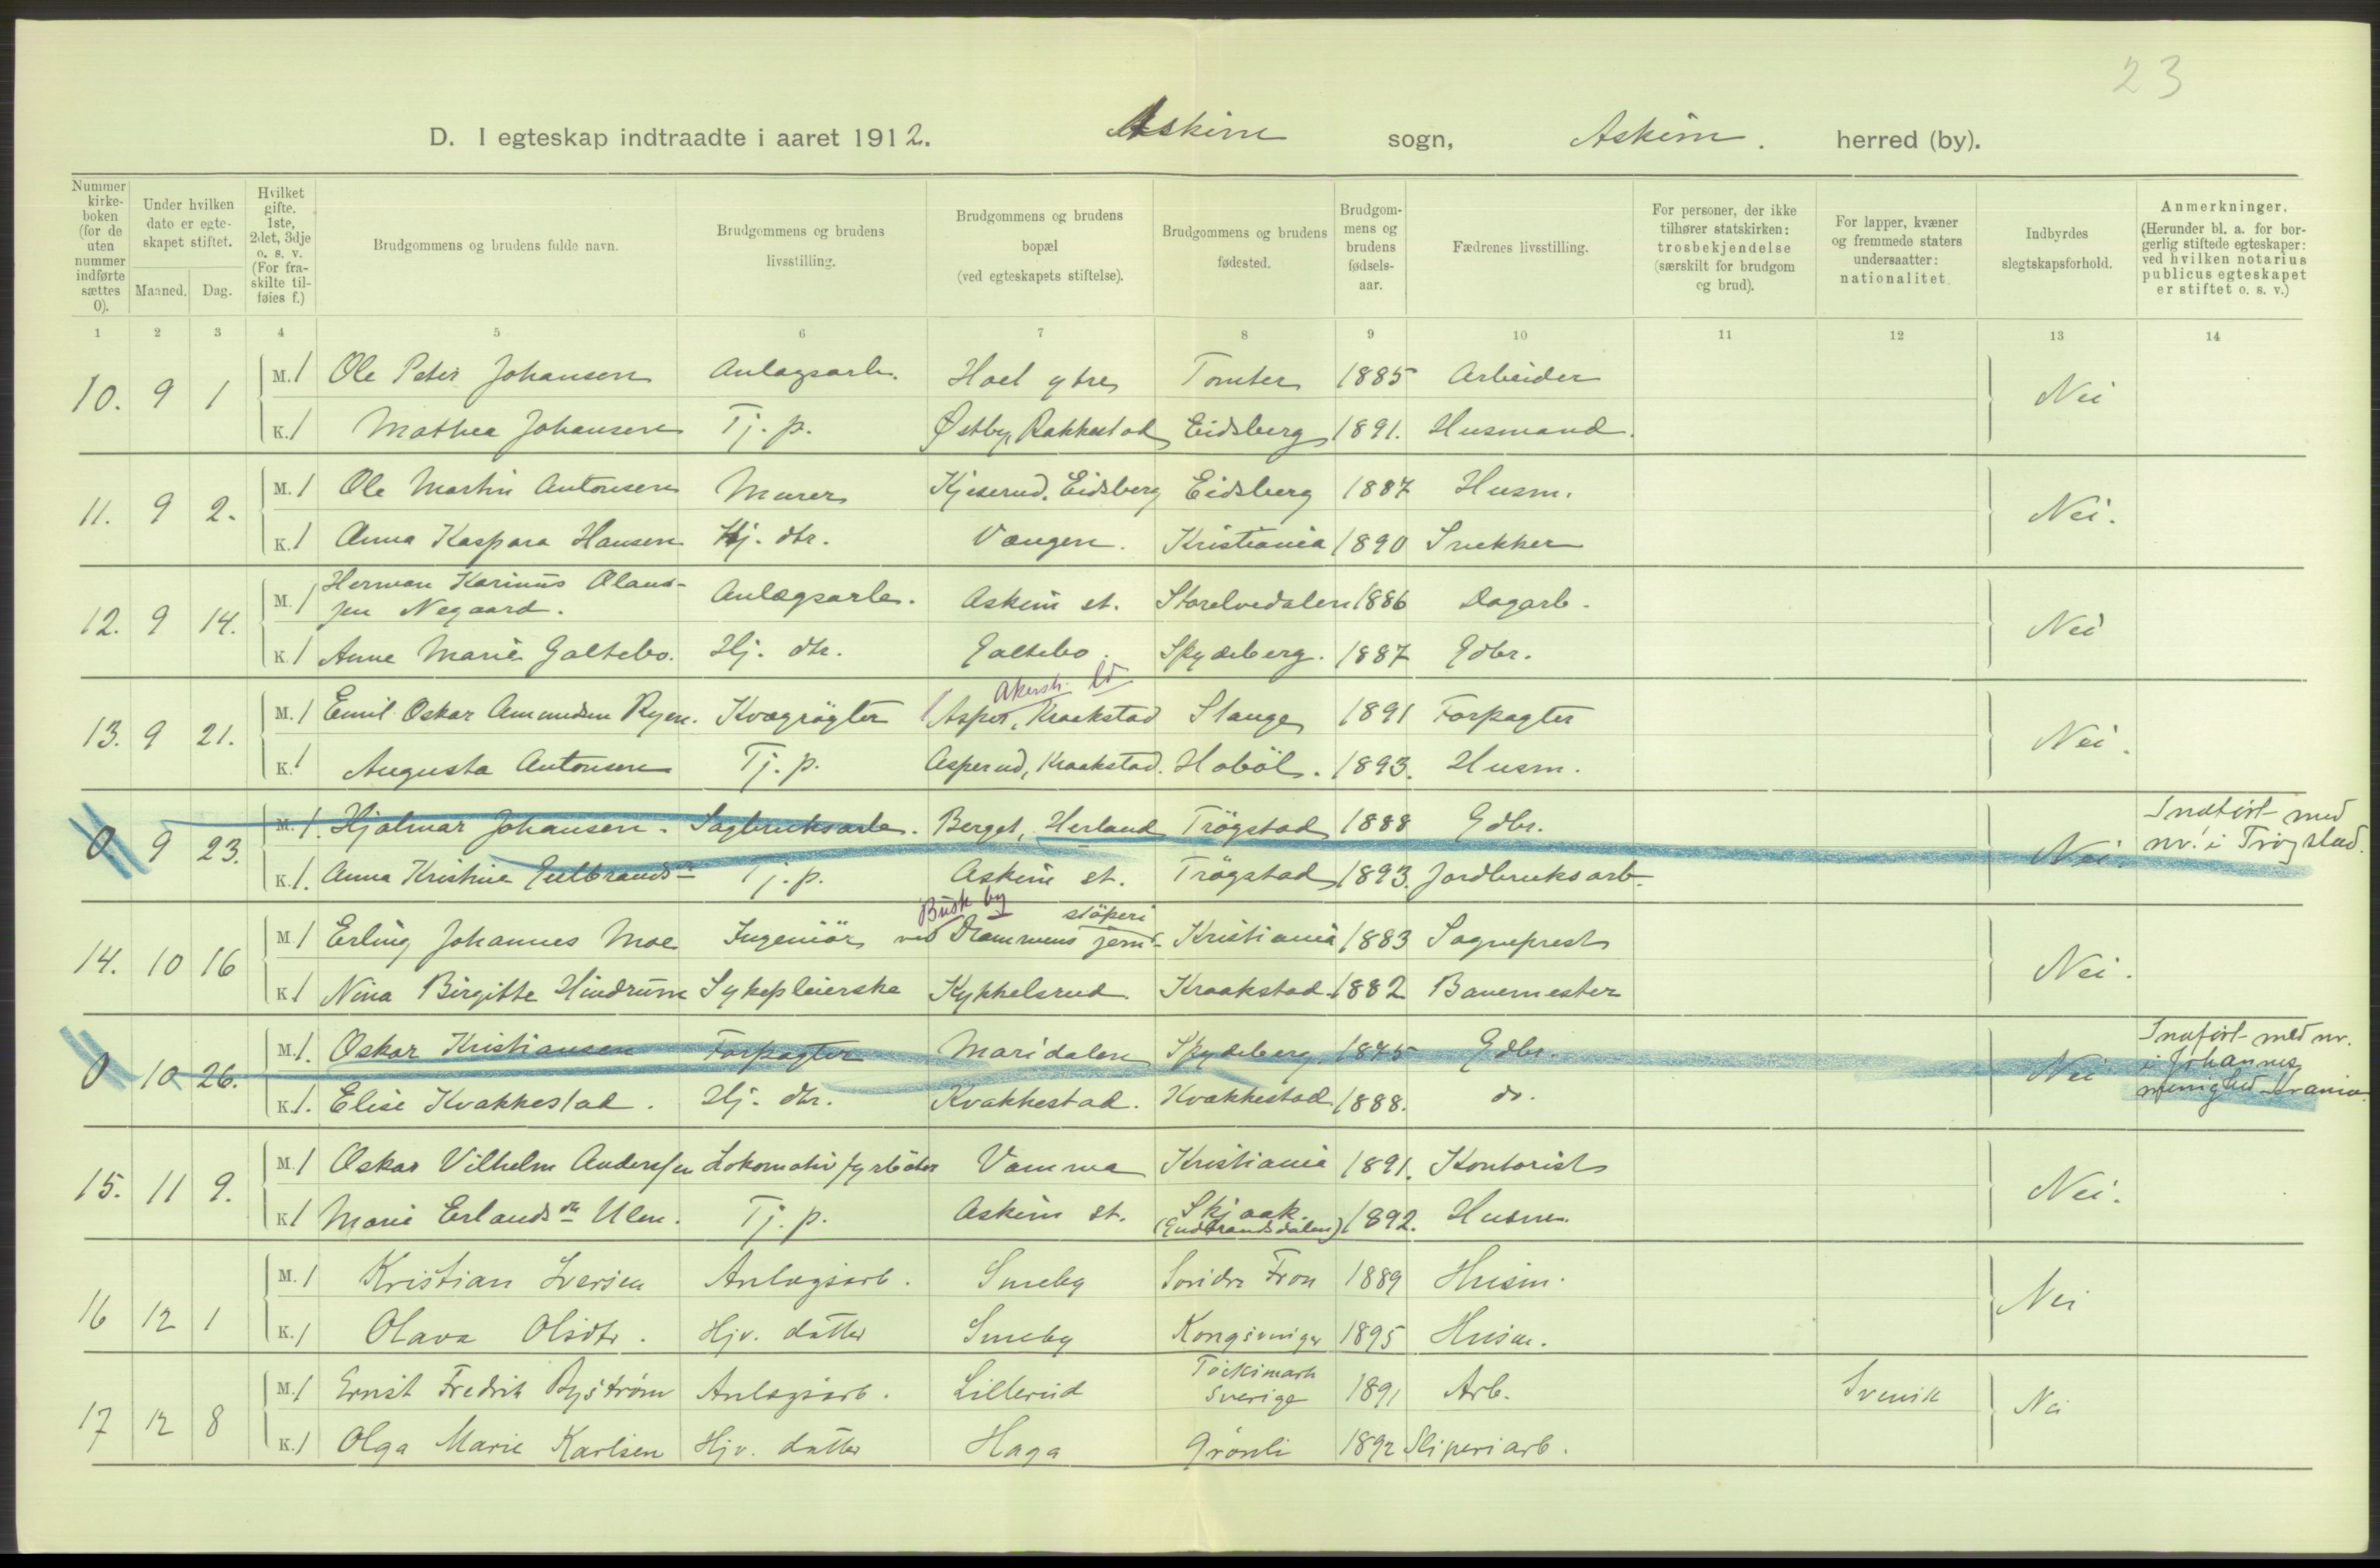 23
D. I egteskap indtraadte i aaret 1912. Askim sogn, Askim. herred (by).
Nummer kirkeboken (for de uten nummer indførte sættes 0).
Under hvilken dato er egteskapet stiftet.
Maaned. Dag.
Hvilket gifte. 1ste, 2det, 3dje o. s. v. (For fraskilte tilføies f.)
Brudgommens og brudens fulde navn.
Brudgommens og brudens livsstilling.
Brudgommens og brudens bopæl (ved egteskapets stiftelse).
Brudgommens og brudens fødested.
Brudgommens og brudens fødselsaar.
Fædrenes livsstilling.
For personer, der ikke tilhører statskirken: trosbekjendelse (særskilt for brudgom og brud).
For lapper, kvæner og fremmede staters undersaatter: nationalitet.
Indbyrdes slegtskapsforhold.
Anmerkninger. (Herunder bl. a. for borgerlig stiftede egteskaper: ved hvilken notarius publicus egteskapet er stiftet o. s. v.)
1 2 3 4 5 6 7 8 9 10 11 12 13 14
10. 9 1 M. 1 Ole Peter Johansen Anlagsarb. Hoel ytre Tomter 1885 Arbeider Nei
K. 1 Mathea Johansen Tj. p. Østby, Rakkestad Eidsberg 1891. Husmand.
11. 9 2. M. 1 Ole Martin Antonsen Murer Kjeserud, Eidsberg Eidsberg 1887 Husm. Nei.
K. 1 Anna Kaspara Hansen Hj. dtr. Vangen. Kristiania 1890 Snekker
12. 9 14. M. 1 Herman Karinus Olaus-
sen Negaard. Anlægsarb. Askim st. Storelvedalen 1886 Dagarb. Nei
K. 1 Anne Marie Galtebo. Hj. dtr. Galtebo. Spydeberg. 1887 Gdbr.
Akersh. ld
13. 9 21. M. 1 Emil Oskar Amundsen Ryen. Kvægrögter Asper, Kraakstad Stange 1891 Forpagter Nei.
K. 1 Augusta Antonsen Tj. p. Asperud, Kraakstad. Hoböl. 1893. Husm.
0. 9 23. M. 1. Hjalmar Johansen. Sagbruksarb. Berget, Herland Trögstad 1888 Gdbr. Nei. Indført med
nr. i Trögstad.
K. 1. Anna Kristine Gulbrandsdr Tj. p. Askim st. Trögstad 1893. Jordbruksarb.
Busk by
støperi
14. 10 16 M. 1 Erling Johannes Moe Ingeniör ved Drammens jern- Kristiania 1883 Sogneprest Nei.
K. 1 Nina Birgitte Hindrum Sykepleierske Kykkelsrud. Kraakstad. 1882 Banemester
0 10 26. M. 1. Oskar Kristiansen Forpagter Maridalen Spydeberg 1875 Gdbr. Nei Indført med nr.
i Johannes
menighed Krania.
K. 1. Elise Kvakkestad. Hj. dtr. Kvakkestad. Kvakkestad 1888. do.
15. 11 9. M. 1 Oskar Vilhelm Anderssen Lokomotivfyrböter Vamma Kristiania 1891. Kontorist Nei.
K. 1 Marie Erlandsdr Ulen. Tj. p. Askim st. Skjaak.
(Gudbrandsdalen) 1892. Husm.
16 12 1 M. 1 Kristian Iversen Anlægsarb. Smeby Søndre Fron 1889 Husm. Nei
K. 1 Olava Olsdtr. Hjv. datter Smeby Kongsvinger 1895 Husm.
17 12 8 M. 1 Ernst Fredrik Byström Anlægsarb. Lillerud Töcksmark
Sverige 1891 Arb. Svensk Nei
K. 1 Olga Marie Karlsen Hjv. datter Haga Grønli 1892 Sliperiarb.